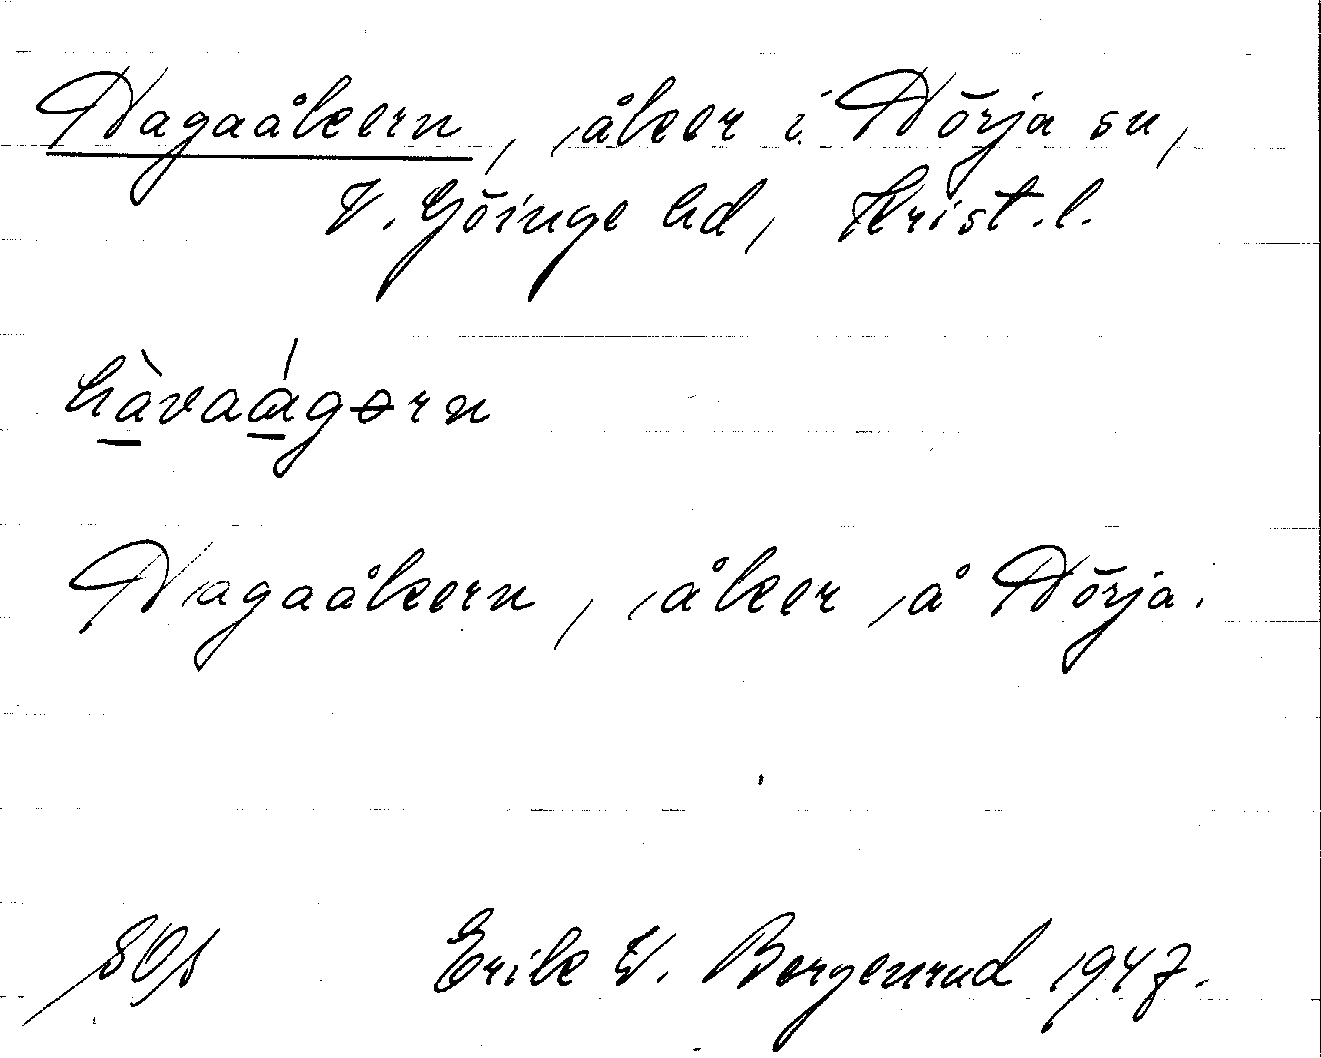 Hagaåkern, åker i Hörja sn,
V. Göinge hd, Krist. l.
hàvaágərn
Hagaåkern, åker å Hörja.
Erik V. Bergenrud 1947.